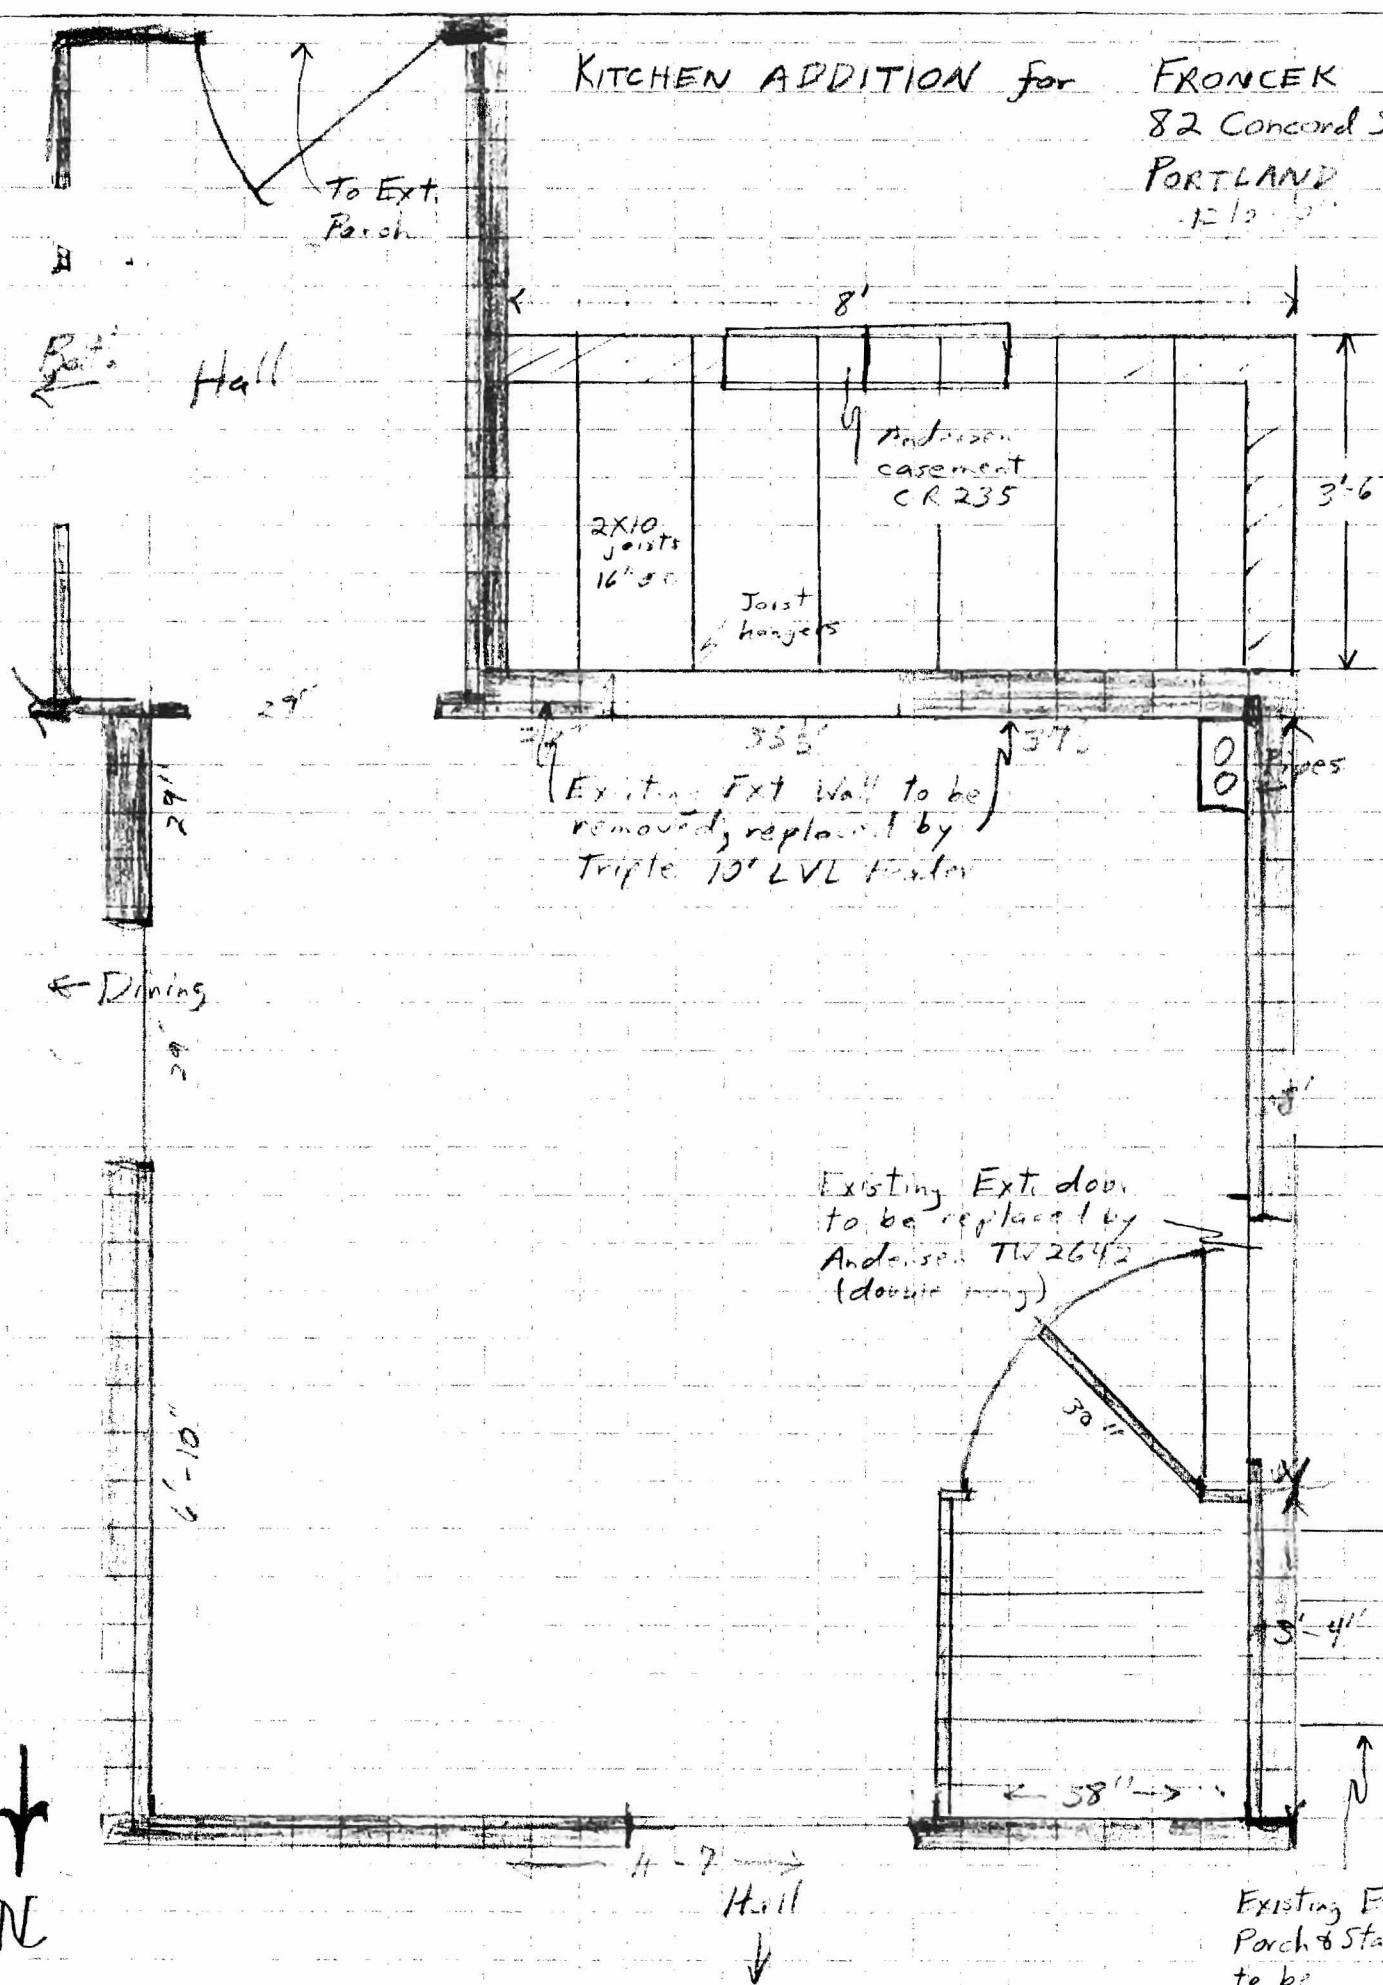 KITCHEN ADDITION for FRONCEK
82 Concord S
PORTLAND
To Ext.
Porch
8'
Hall
Andersen
casement
CR 235
3'-6
2X10
joists
16" oc
Joist
hangers
29"
35½"
37½
Pipes
29"
Existing Ext Wall to be
removed, replaced by
Triple 10' LVL Header
← Dining
29"
Existing Ext. door
to be replaced by
Andersen TW2642
(double hung)
30"
6'-10"
3'-4"
38"
4-7
Hall
N
Existing E
Porch & Sta
to be